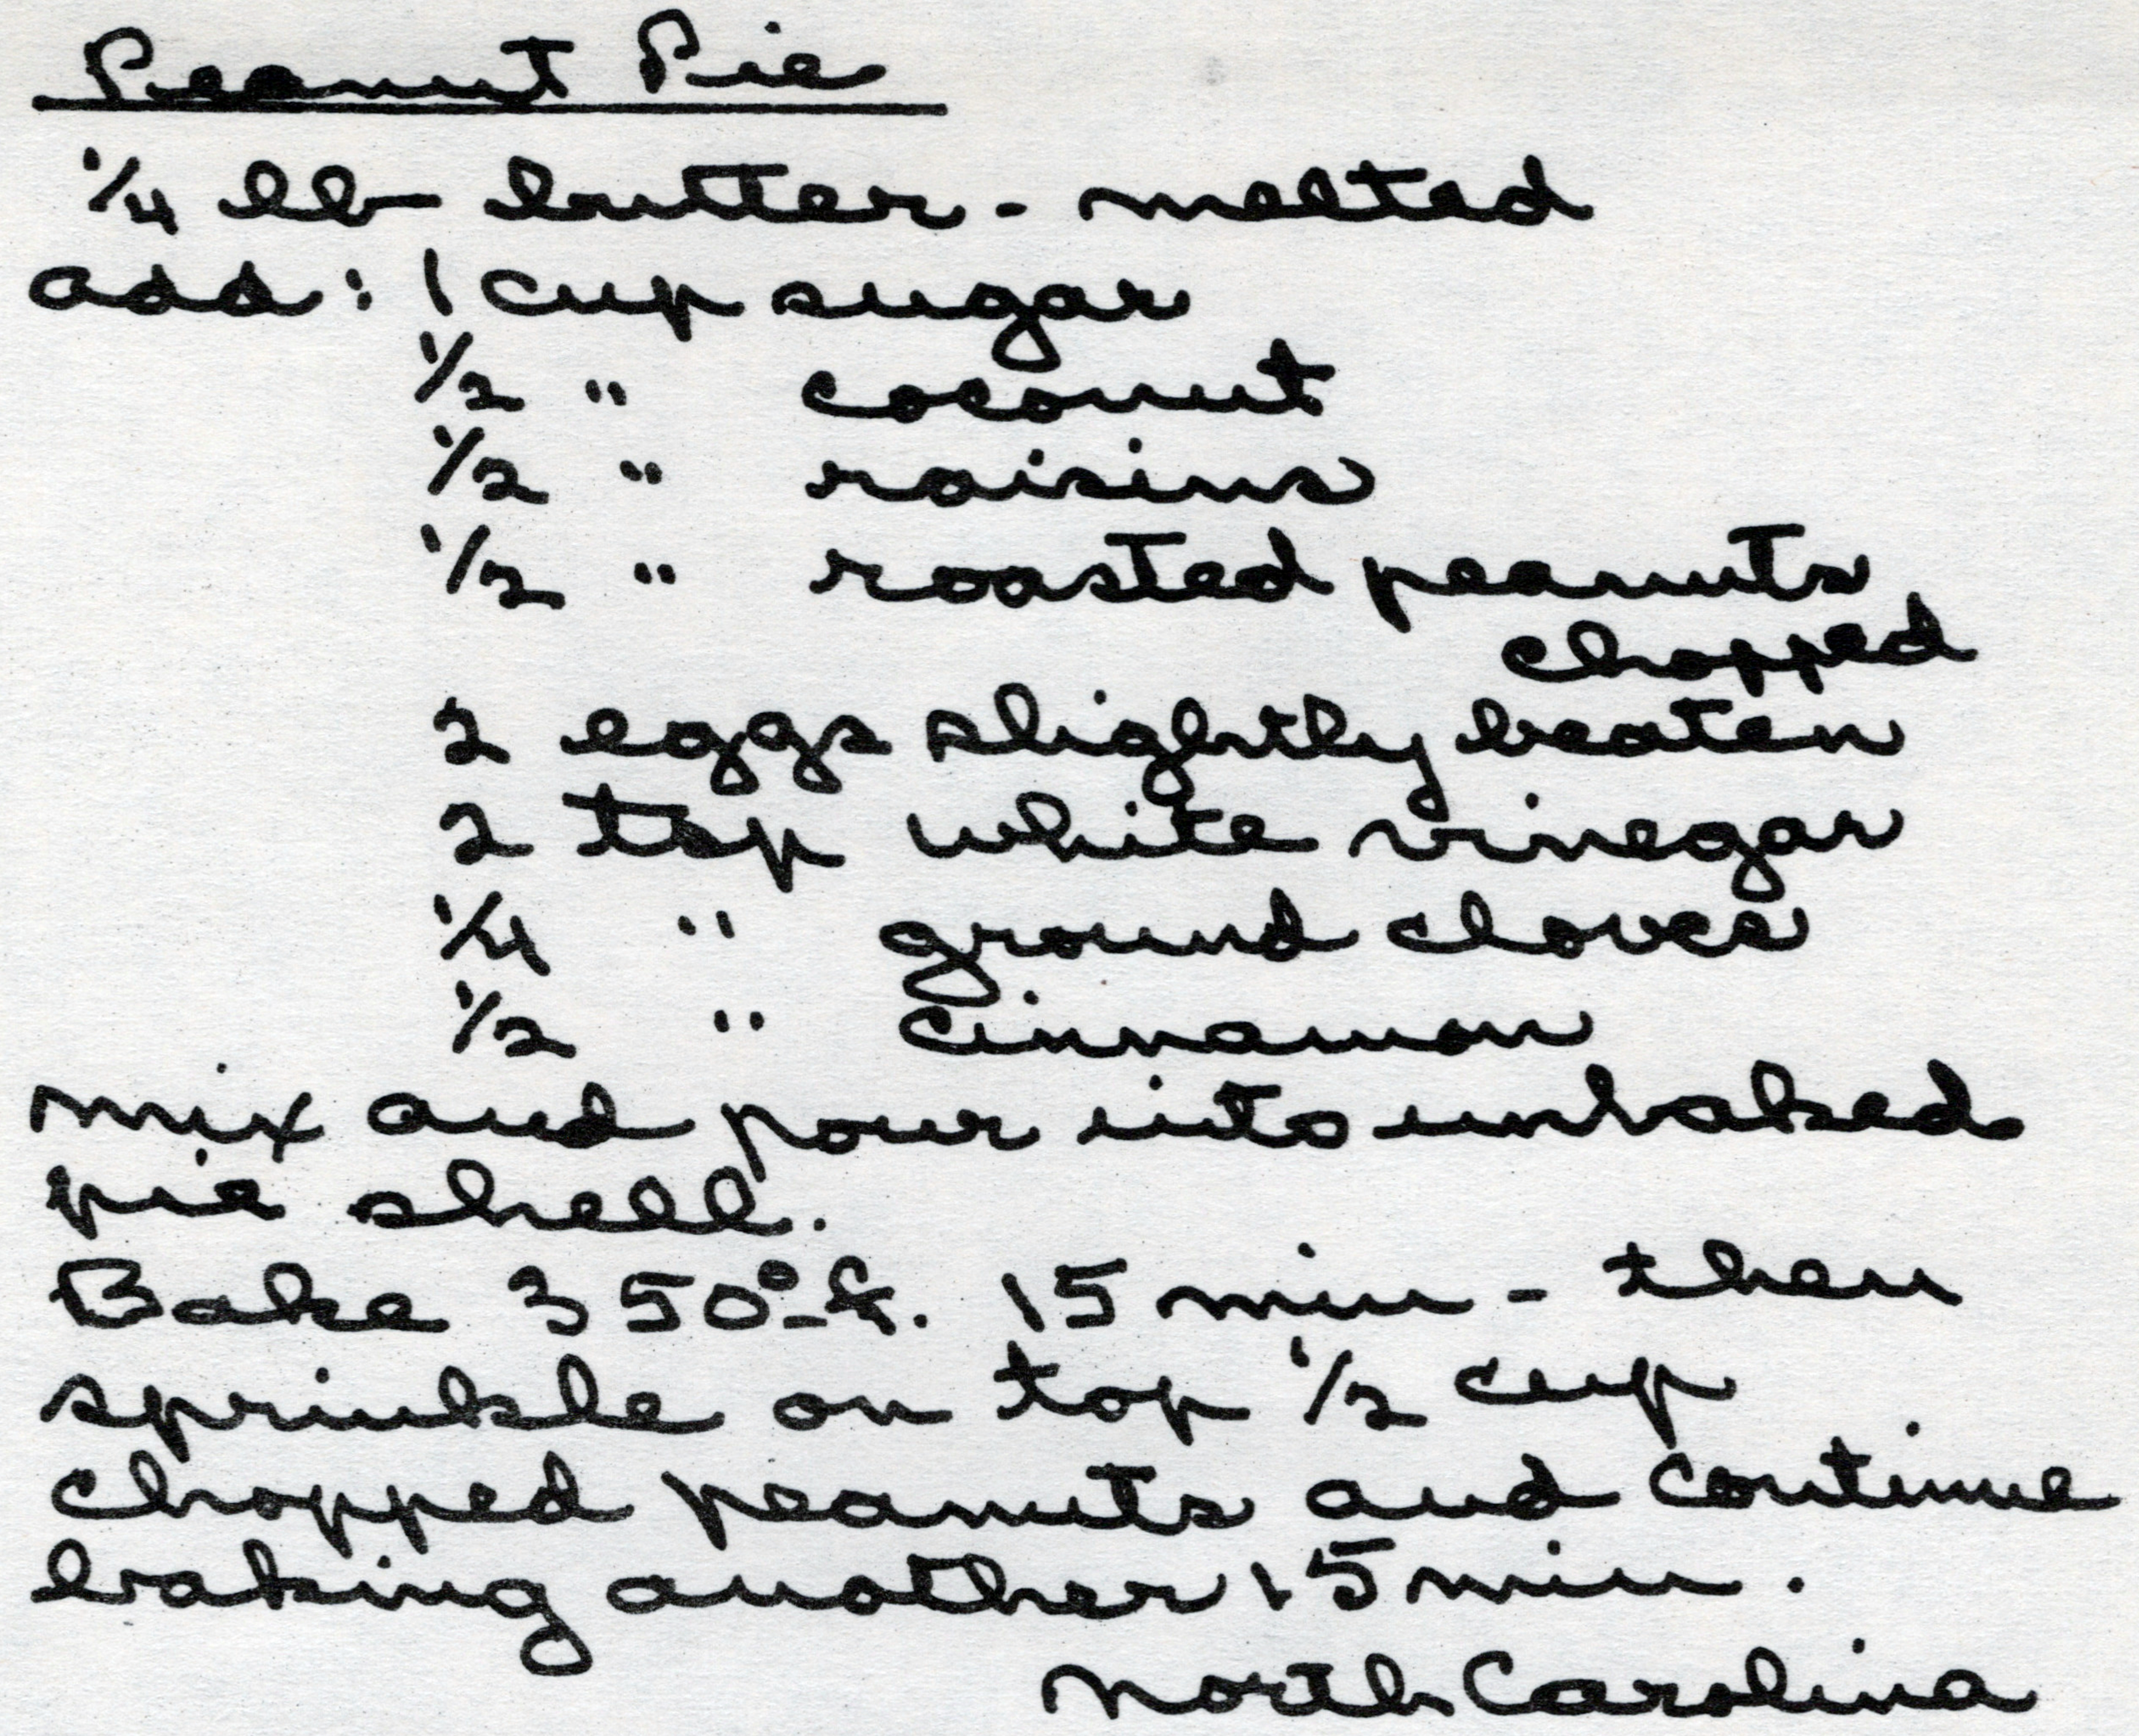 Peanut Pie
1/4 lb butter - melted
add: 1 cup sugar
1/2 " coconut
1/2 " raisins
1/2 " roasted peanuts,
chopped
2 eggs slightly beaten
2 tsp white vinegar
1/4 " ground cloves
1/2 " cinnamon
mix and pour into unbaked
pie shell.
Bake 350° f. 15 min - then
sprinkle on top 1/2 cup
chopped peanuts and continue
baking another 15 min.
North Carolina